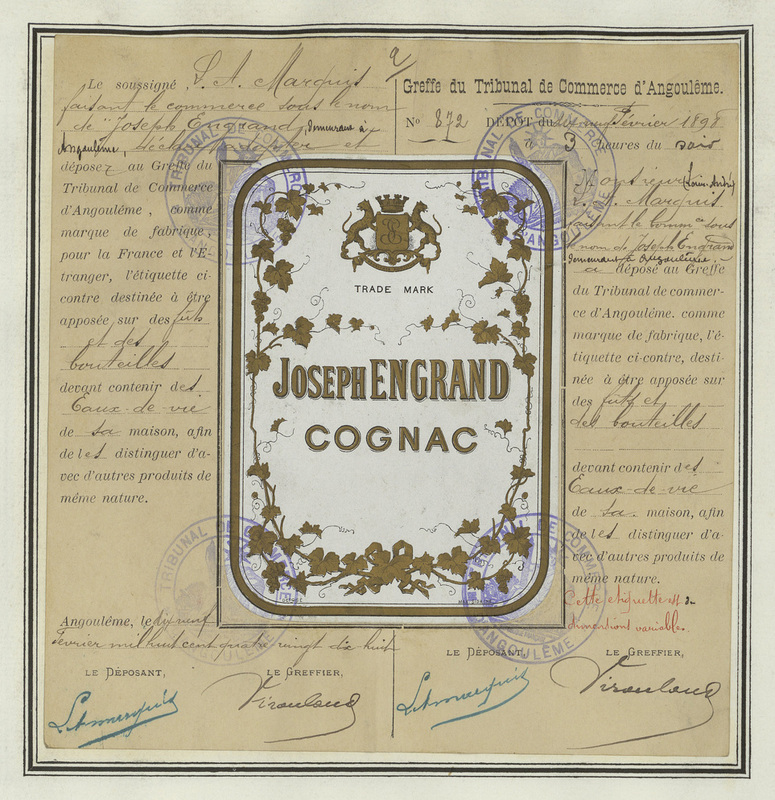 Le soussigné, L. A. Marquis
faisant le commerce sous le nom
de "Joseph Engrand, demeurant à
Angoulême, déclare et
déposer au Greffe du
Tribunal de Commerce
d'Angoulême, comme
marque de fabrique,
pour la France et l'É-
tranger, l'étiquette ci-
contre destinée à être
apposée sur des fûts
et des
bouteilles
devant contenir des
Eaux-de-vie
de sa maison, afin
de les distinguer d'a-
vec d'autres produits de
même nature.
Angoulême, le dix neuf
Février mil huit cent quatre vingt dix huit
LE DÉPOSANT,
LE GREFFIER,
LAmarquis
Viroulaud
TRADE MARK
JOSEPH ENGRAND
COGNAC
Greffe du Tribunal de Commerce d'Angoulême.
No 872 DÉPOT du Février 1898
à 3 heures du soir
(Louis André)
L. A. Marquis
faisant le comm.ce sous
nom de Joseph Engrand
demeurant à Angoulême,
a déposé au Greffe
du Tribunal de commer-
ce d'Angoulême. comme
marque de fabrique, l'é-
tiquette ci-contre, desti-
née à être apposée sur
des fûts et
des bouteilles
devant contenir des
Eaux-de-vie
de sa maison, afin
de les distinguer d'a-
vec d'autres produits de
même nature.
Cette étiquette est de
dimensions variables.
LE DÉPOSANT,
LE GREFFIER,
LAmarquis
Viroulaud
TRIBUNAL DE COMMERCE
ANGOULÊME
TRIBUNAL DE COMMERCE
ANGOULÊME
TRIBUNAL DE COMMERCE
ANGOULÊME
TRIBUNAL DE COMMERCE
ANGOULÊME